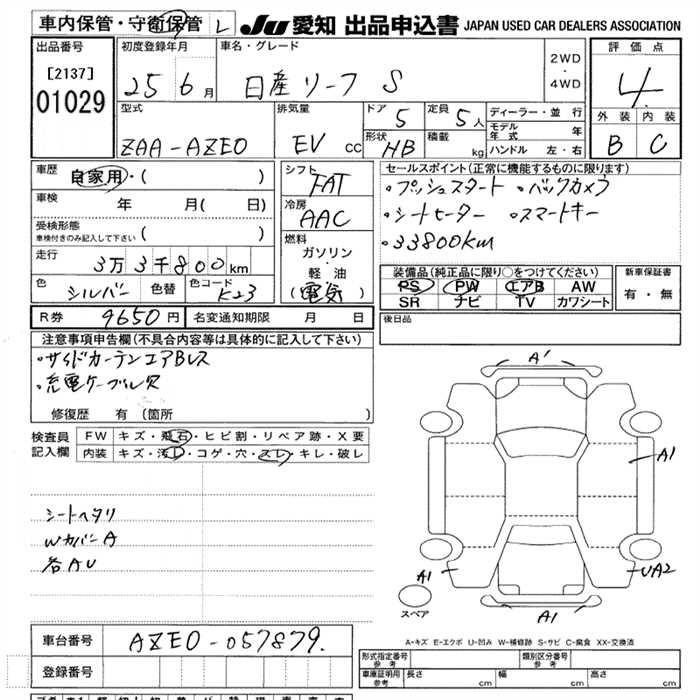 車内保管・守衛保管 L JU 愛知 出品申込書 JAPAN USED CAR DEALERS ASSOCIATION
出品番号
[2137]
01029
初度登録年月
25 6 月
車名・グレード
日産リーフ S
2WD
・
4WD
評価点
4
外装 内装
B C
型式
ZAA-AZE0
排気量
EV cc
ドア 5
定員 5 人
形状 HB
積載 kg
ディーラー・並 行
モデル年式 年
ハンドル 左・右
車歴
自家用・( )
車検 年 月( 日)
受検形態
車検付きのみ記入して下さい ( )
走行
3万3千800km
色 シルバー 色替 色コード K23
シフト
FAT
冷房
AAC
燃料
ガソリン
・
軽・油
(電気)
セールスポイント(正常に機能するものに限ります)
・プッシュスタート ・バックカメラ
・シートヒーター ・スマートキー
・33800km
装備品(純正品に限り○をつけてください)
PS PW エアB AW
SR ナビ TV カワシート
新車保証書
有・無
R券 9650円 名変通知期限 月 日
後日品
注意事項申告欄(不具合内容等は具体的に記入して下さい)
・サイドカーテンエアBレス
・充電ケーブル欠
修復歴 有 (箇所 )
検査員
記入欄
FW キズ・飛石・ヒビ割・リペア跡・X要
内装 キズ・汚レ・コゲ・穴・スレ・キレ・破レ
シートヘタリ
WカバーA
各AU
A1
A1
A1
UA2
A1
スペア
A-キズ E-エクボ U-凹み W-補修跡 S-サビ C-腐食 XX-交換済
車台番号 AZE0-057879.
登録番号
形式指定番号
参考
類別区分番号
参考
車庫証明用
参考
長さ cm 幅 cm 高さ cm